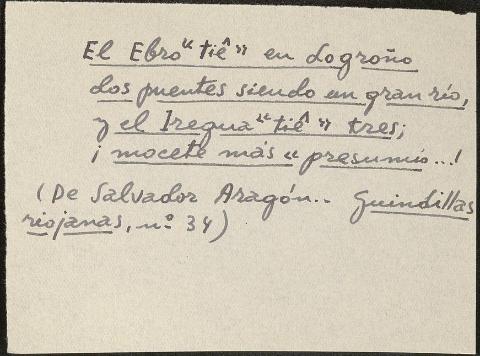 El Ebro "tiê" en Logroño
dos puentes siendo un gran río,
y el Iregua "tiê" tres;
¡mocete más "presumío...!
(De Salvador Aragón.. Guindillas
riojanas, nº 34)